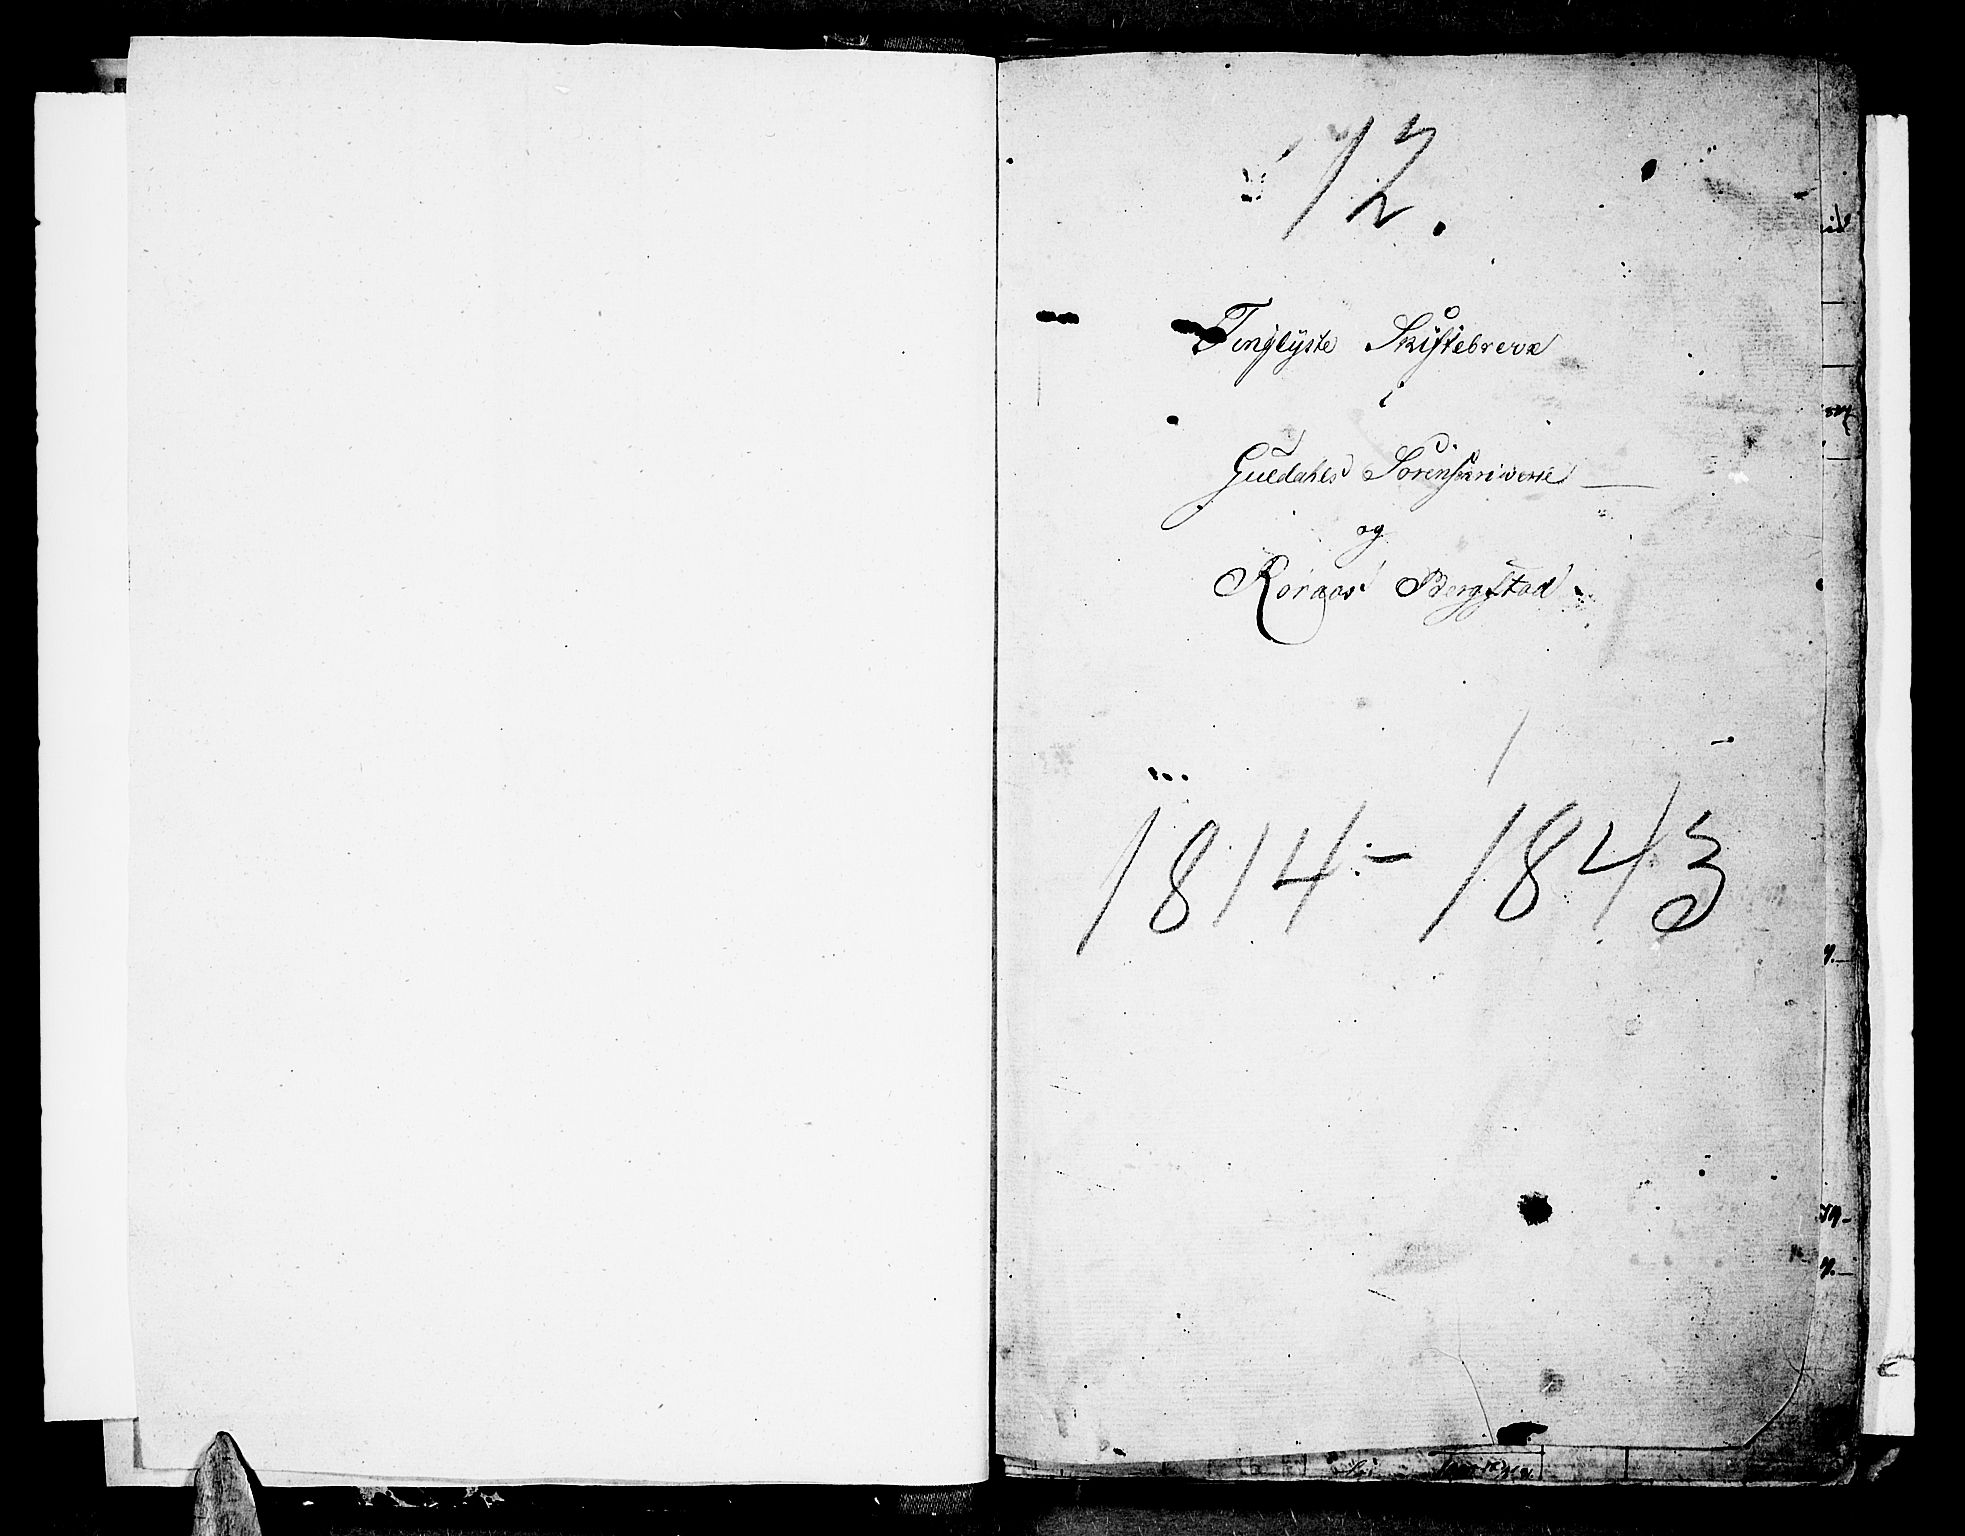 12.
Tinglyste Skiftebreve
i
Guldahls Sorenskriverie
og
Røraas Bergstad
1814 - 1843